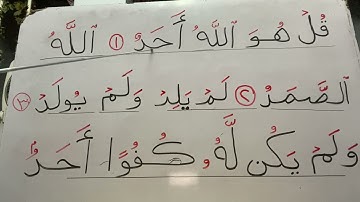 قُلْ هُوَ ٱللَّهُ أَحَدٌ ١ ٱللَّهُ
ٱلصَّمَدُ ٢ لَمْ يَلِدْ وَلَمْ يُولَدْ ٣
وَلَمْ يَكُن لَّهُۥ كُفُوًا أَحَدٌۢ